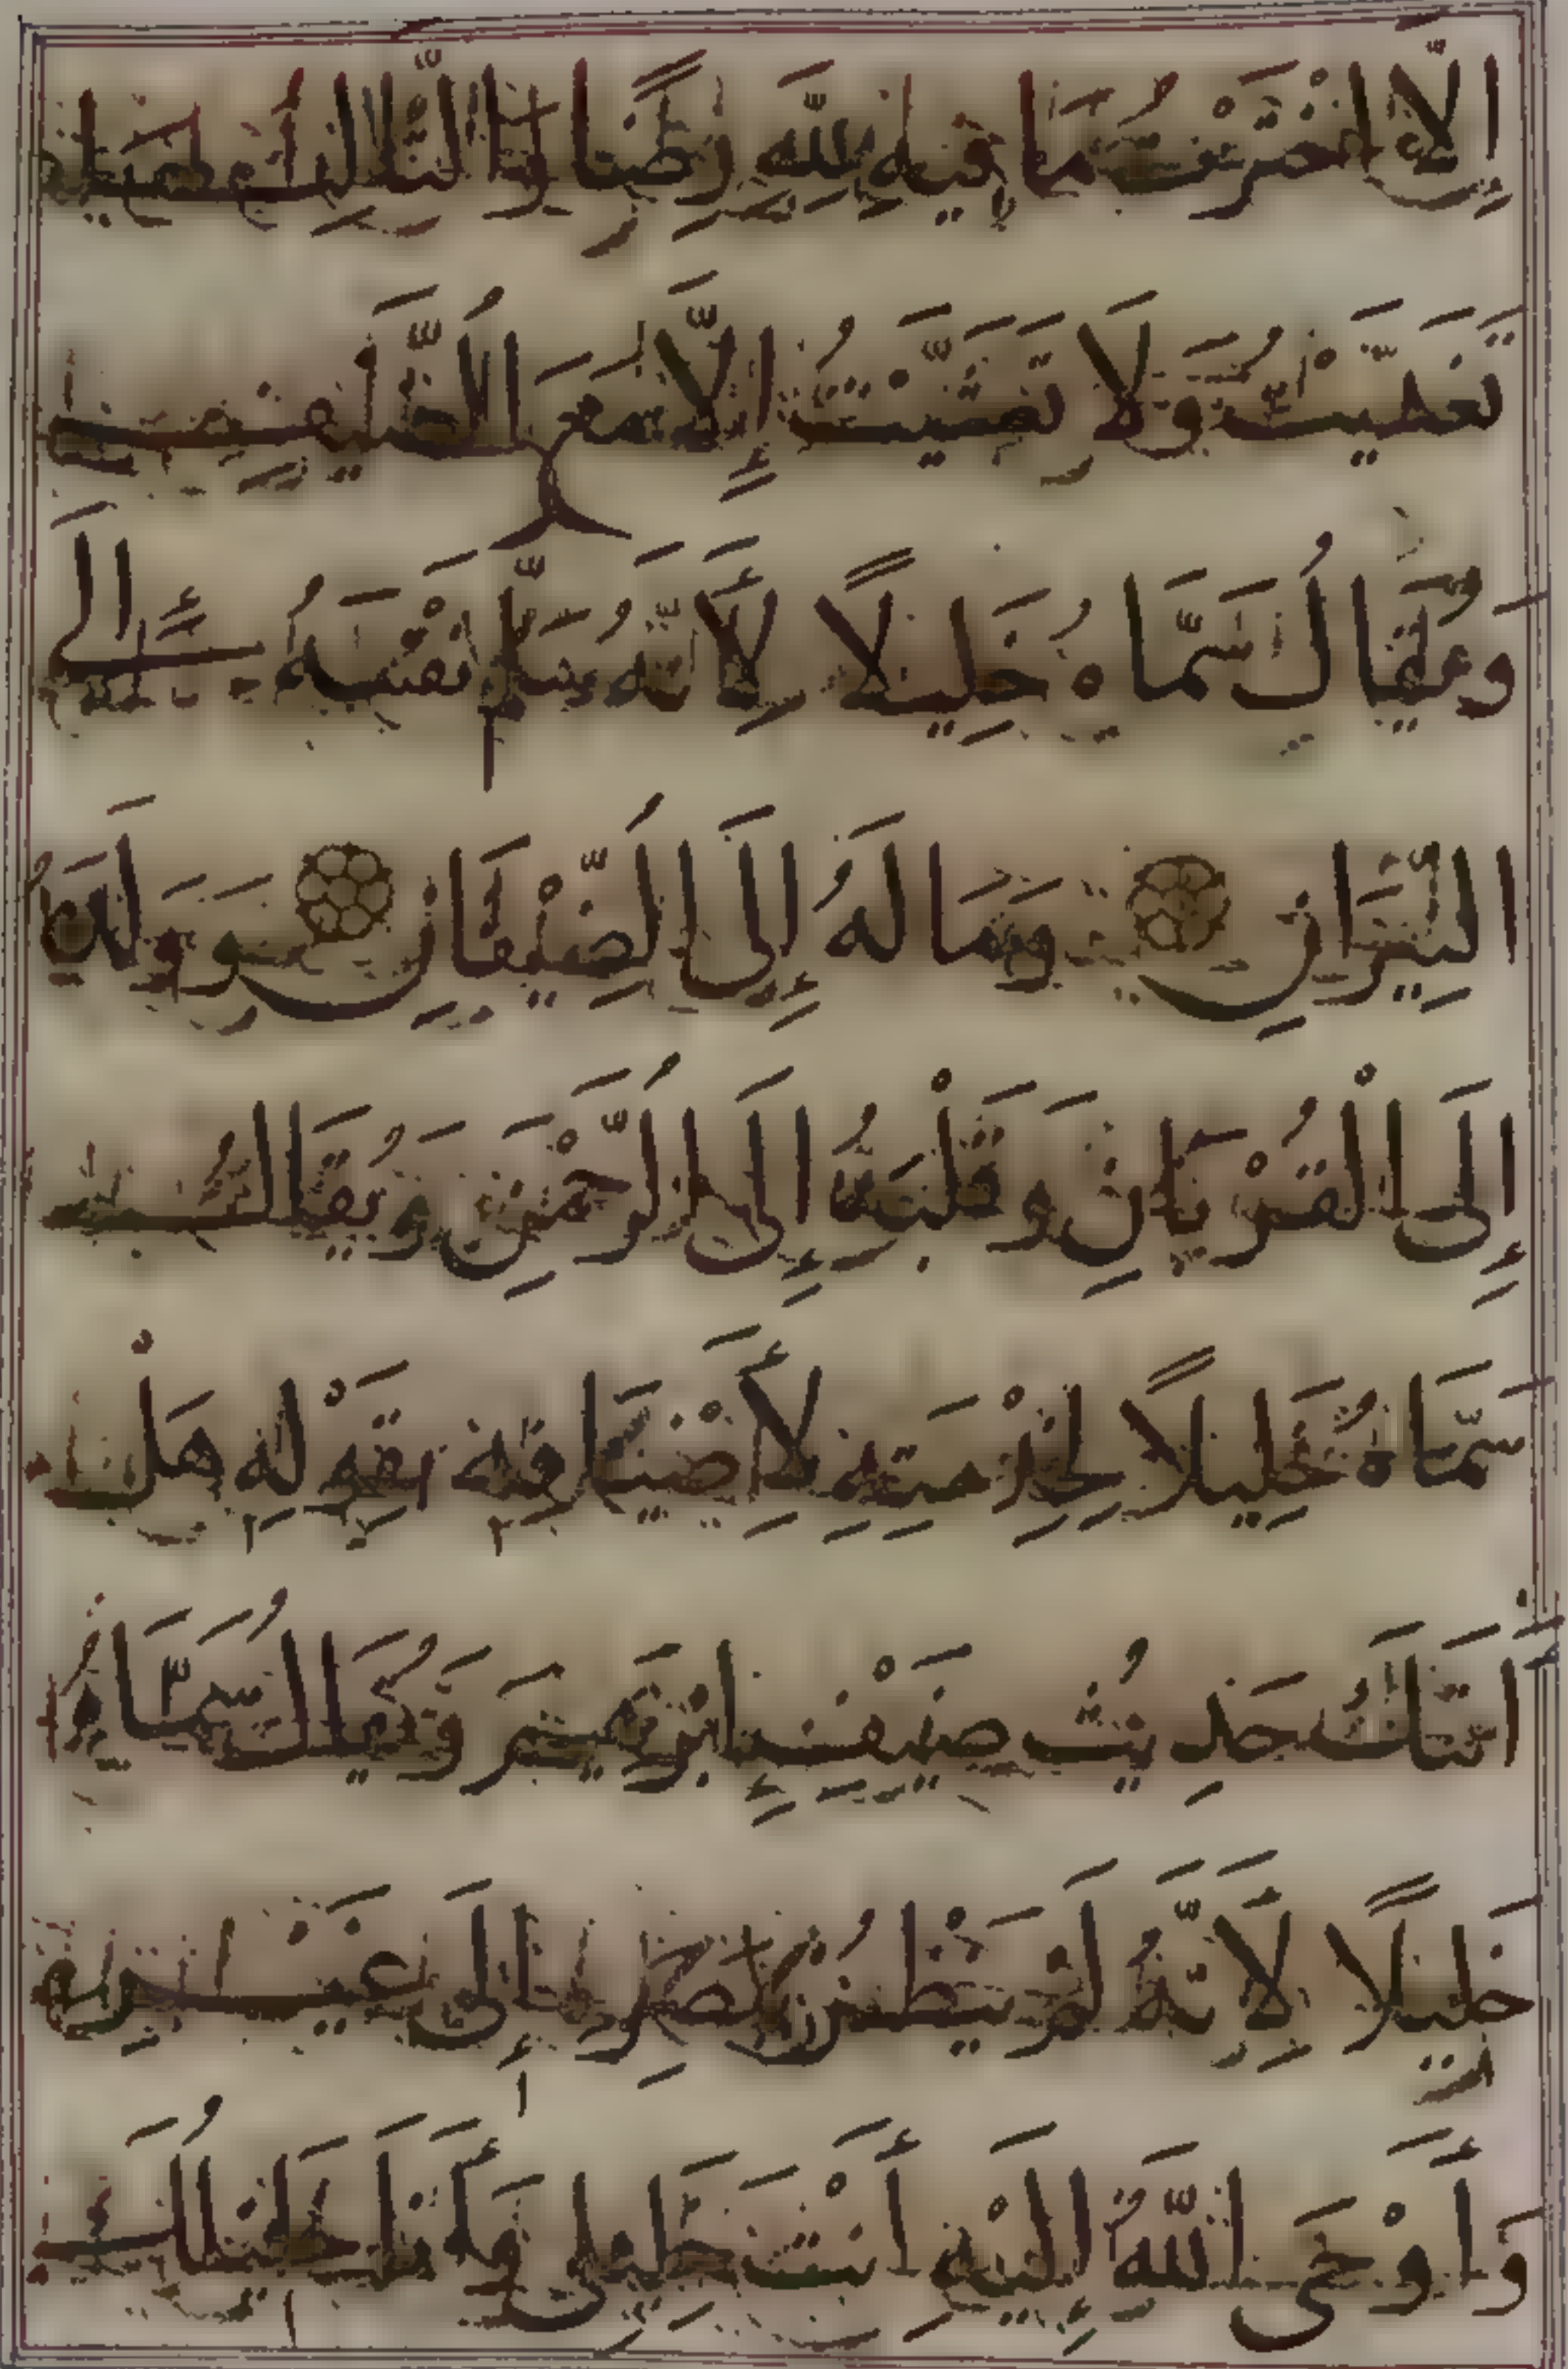 إِلَّا اخْتَرْتُ مَا فِيهِ لِلَّهِ رِضًا وَالثَّالِثُ مَا
تَغَدَّيْتُ وَلَا تَعَشَّيْتُ إِلَّا مَعَ الضَّيْفِ
وَيُقَالُ سَمَّاهُ خَلِيلًا لِأَنَّهُ سَلَّمَ نَفْسَهُ إِلَى
النِّيرَانِ وَمَالَهُ إِلَى الضِّيْفَانِ وَوَلَدَهُ
إِلَى الْقُرْبَانِ وَقَلْبَهُ إِلَى الرَّحْمَنِ وَيُقَالُ
سَمَّاهُ خَلِيلًا لِخِدْمَتِهِ لِأَضْيَافِهِ بِقَوْلِهِ هَلْ
أَتَاكَ حَدِيثُ ضَيْفِ إِبْرَهِيمَ وَيُقَالُ سَمَّاهُ
خَلِيلًا لِأَنَّهُ لَمْ يَنْظُرْ إِلَى غَيْرِهِ
وَأَوْحَى اللَّهُ إِلَيْهِ أَنْتَ خَلِيلِى وَأَنَا خَلِيلُكَ